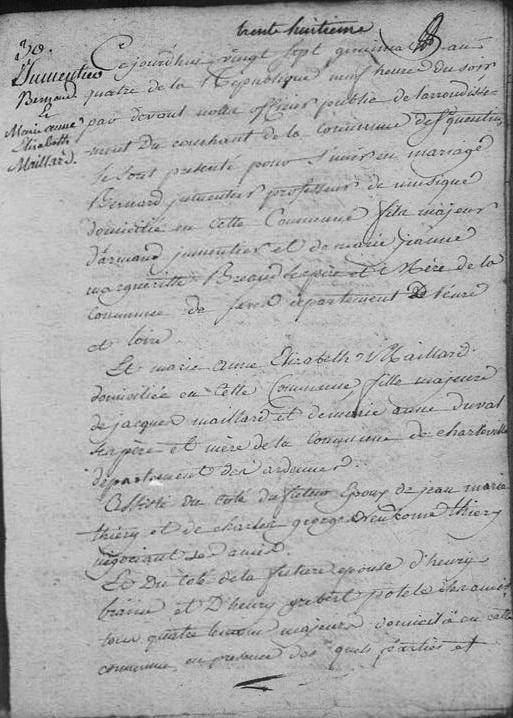 trente huitieme
Jumentier
Bernard
Et
Marie anne
Elizabeth
Maillard.
Cejourdhui vingt sept germinal an
quatre de la République neuf heure du soir
par devant nous officier public de larrondisse-
ment du couchant de la Commune de St quentin,
se sont presenté pour s'unir en mariage
Bernard jumentier professeur de musique
domicilié en cette Commune fils majeur
d'armand jumentier et de marie jeanne
margueritte Briand le père et Mère de la
Commune de departement de l'eure
et loire.
Et marie anne Elizabeth Maillard.
domiciliée en cette Commune, fille majeure
de jacques maillard et de marie anne duval
père et mère de la Commune de charleville
département des ardennes.
Assisté du coté du futur Epoux de jean marie
thiery et de charles george thiery
négociant ses amis.
Et Du coté de la future epouse d'henry
et D'henry potel ses amis
tous quatre majeurs domicilié en cette
commune, en presence des quels parties et